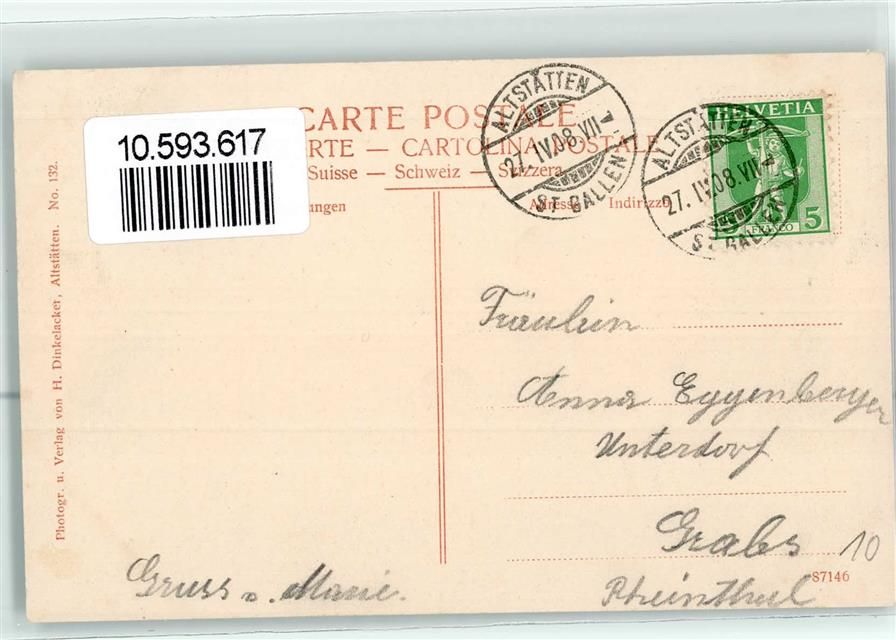 10.593.617
CARTE POSTALE
RTE — CARTOLINA POSTALE
Suisse — Schweiz — Svizzera
ungen
Adresse Indirizzo
ALTSTÄTTEN
27. IV.08. VII
ST. GALLEN
ALTSTÄTTEN
27. IV.08. VII
ST. GALLEN
HELVETIA
5 FRANCO 5
Photogr. u. Verlag von H. Dinkelacker, Altstätten. No. 132.
Fräulein
Anna Eggenberger
Unterdorf
Grabs
10
Rheinthal
87146
Gruss v. Marie.